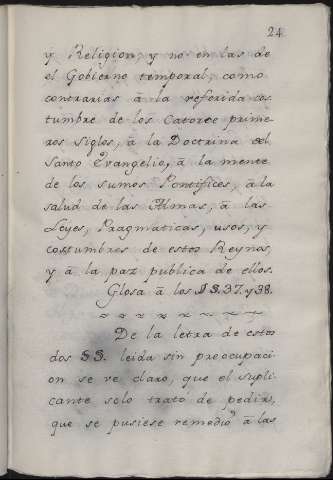 24
y Religion, y no en las de
el Gobierno temporal, como
contrarias â la referida cos
tumbre de los Catorce prime
ros siglos, â la Doctrina del
Santo Evangelio, â la mente
de los sumos Pontifices, â la
salud de las Almas, â las
Leyes, Pragmaticas, usos, y
costumbres de estos Reynos,
y â la paz publica de ellos.
Glosa â los §§. 37. y 38.
~ ~ ~ ~ ~ ~ ~ ~
De la letra de estos
dos §§. leida sin preocupaci
on se ve claro, que el supli
cante solo trató de pedir,
que se pusiese remedio â las